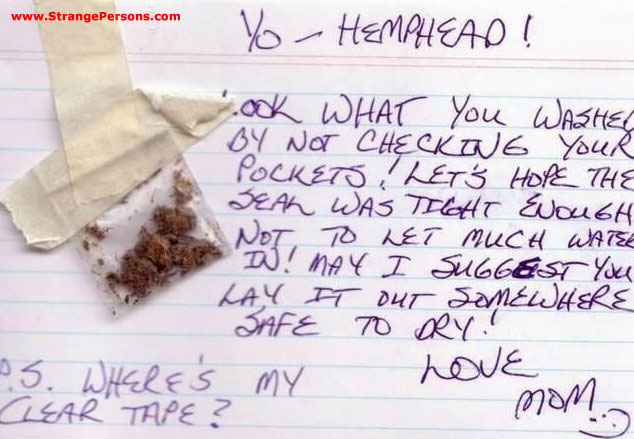 www.StrangePersons.com
YO - HEMPHEAD!
LOOK WHAT YOU WASHED
BY NOT CHECKING YOUR
POCKETS! LET'S HOPE THE
SEAL WAS TIGHT ENOUGH
NOT TO LET MUCH WATER
IN! MAY I SUGGEST YOU
LAY IT OUT SOMEWHERE
SAFE TO DRY!
LOVE
MOM :-)
P.S. WHERE'S MY
CLEAR TAPE?